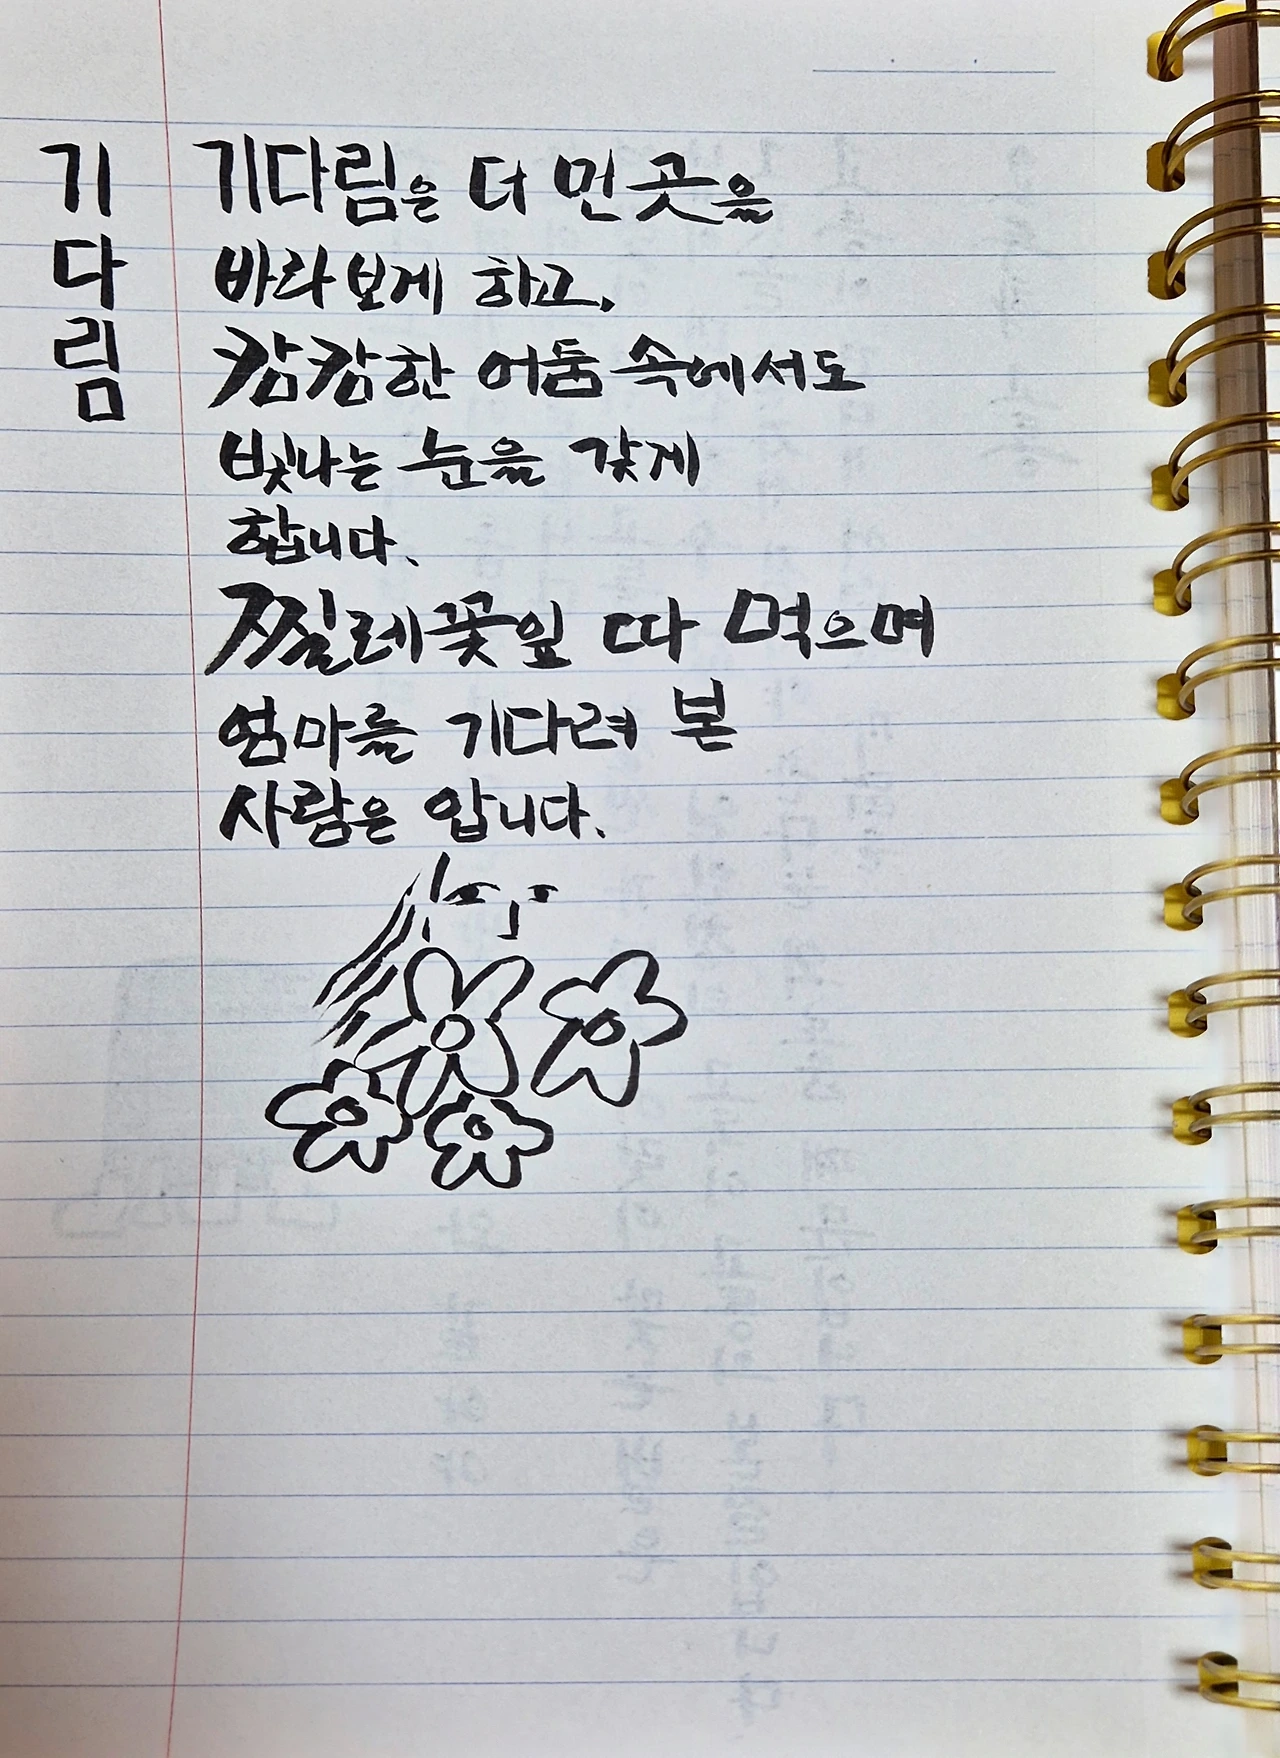 기다림
기다림은 더 먼 곳을
바라보게 하고,
캄캄한 어둠 속에서도
빛나는 눈을 갖게
합니다.
찔레꽃잎 따 먹으며
엄마를 기다려 본
사람은 압니다.